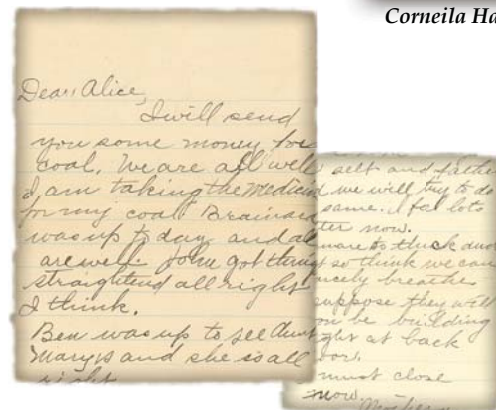 Corneila Ha
Dear Alice,
I will send
you some money for
coal. We are all well
I am taking the medicin
for my coal Brainard
was up to day and al
are well John got thing
straightend all right
I think.
Ben was up to see Aunt
Marys and she is all
right
self and father
d we will try to do
same. I fel lots
ter now.
so thick
t so think we can
cely breathe
suppose they will
on be building
ght at back
oor.
must close
now.
Mother